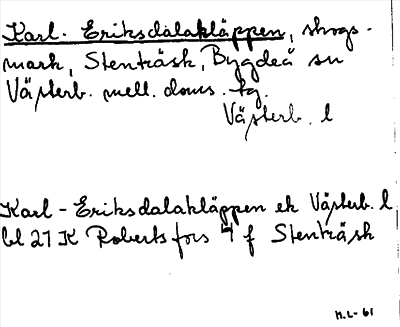 Karl-Eriksdalakläppen, skogs-
mark, Stenträsk, Bygdeå sn
Västerb. mell. doms. tg.
Västerb. l
Karl-Eriksdalakläppen ek Västerb. l
bl 21 K Robertsfors 4 f Stenträsk
H.L-61